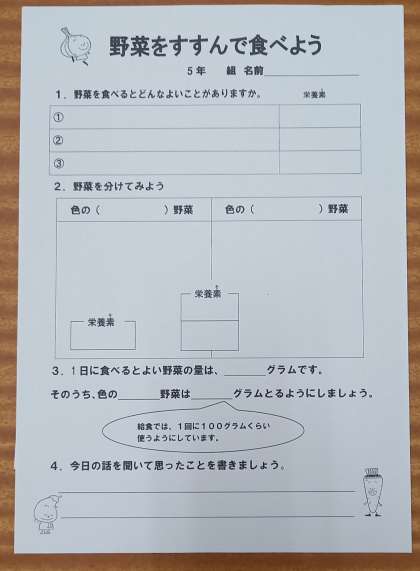 野菜をすすんで食べよう
5年　組 名前
1．野菜を食べるとどんなよいことがありますか。　栄養素
①
②
③
2．野菜を分けてみよう
色の（　　　）野菜　色の（　　　）野菜
そ
栄養素
そ
栄養素
3．1日に食べるとよい野菜の量は、＿＿＿グラムです。
そのうち、色の＿＿＿野菜は＿＿＿グラムとるようにしましょう。
給食では、1回に100グラムくらい
使うようにしています。
4．今日の話を聞いて思ったことを書きましょう。